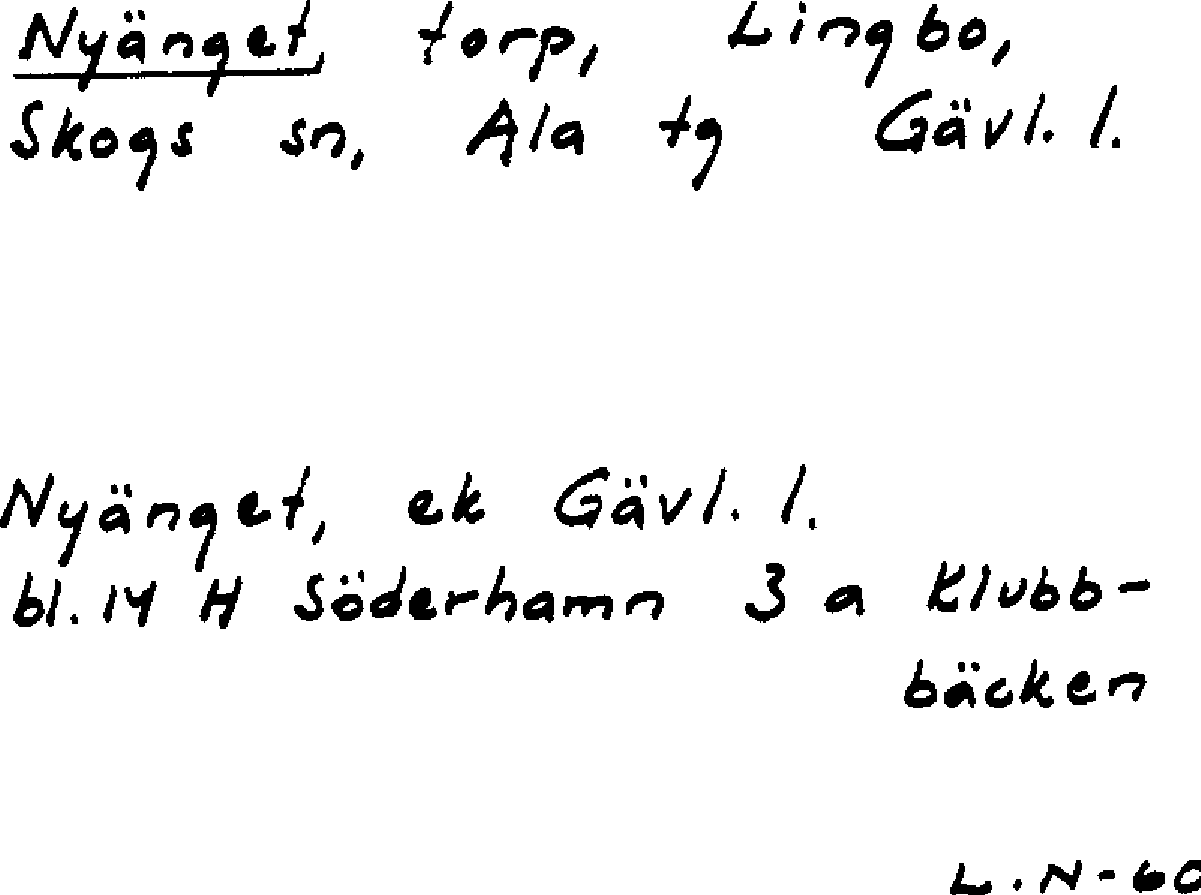 Nyänget, torp, Lingbo,
Skogs sn, Ala tg Gävl. l.
Nyänget, ek Gävl. l.
bl. 14 H Söderhamn 3 a Klubb-
bäcken
L. N-60